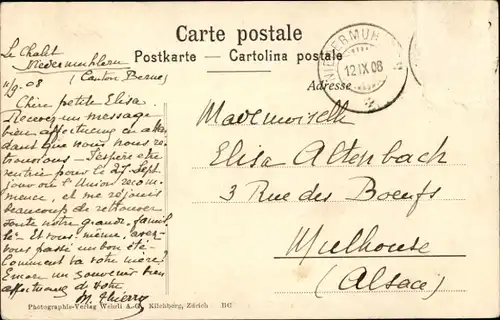 Carte postale
Postkarte — Cartolina postale
Adresse
NIEDERMUH
12 IX 08
Le Chalet
Niedermuhlern
(Canton Berne)
11/9.08
Chère petite Elisa
Recevez un message
bien affectueux en atten
dant que nous nous re
trouvions – J'espère être
rentrée pour le 27 Sept.
jour où l'Union recom
mence, et me réjouis
beaucoup de retrouver
toute notre grande famil
le – Et vous-même, avez-
vous passé un bon été
Comment va votre mère?
un souvenir bien
affectueux de votre
M. Thierry
Mademoiselle
Elisa Altenbach
3 Rue des Boeufs
Mulhouse
(Alsace)
Photographie-Verlag Wehrli A.-G. Kilchberg, Zürich BC